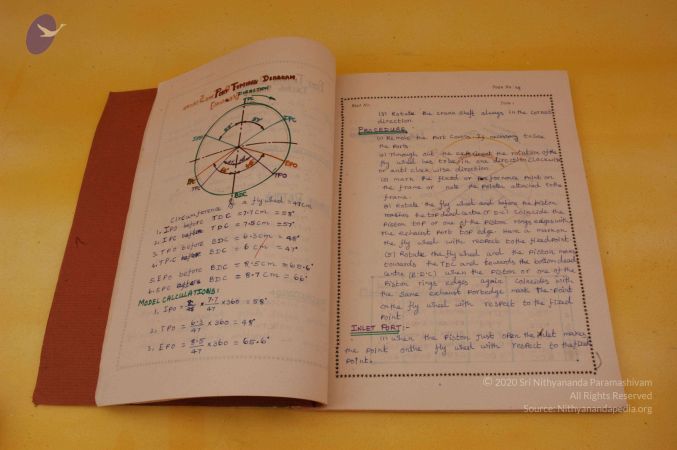 PORT TIMING DIAGRAM
DIRECTION
TDC
IPC
IPO
EPO
TPO
EPC
TPC
BDC
Circumference of a flywheel = 47cm
1. IPO before TDC = 7.7cm = 58°
2. IPC before TDC = 7.5cm = 57°
3. TPO before BDC = 6.3cm = 48°
4. TPC before BDC = 6 cm = 47°
5. EPO before BDC = 8.5cm = 65.6°
6. EPC before BDC = 8.7cm = 66°
MODEL CALCULATIONS:
1. IPO = 7.7 x 360 = 58°
2. TPO = 6.3/47 x 360 = 48°
3. EPO = 8.5/47 x 360 = 65.6°
Page No
Expt No.
Date :
(3) Rotate the crank shaft always in the correct
direction.
PROCEDURE
(1) Remove the Port Covers if necessary to see
the ports
(2) Through out the experiment the rotation of the
fly wheel has to be in one direction clockwise
or anti clock wise direction.
(3) mark the fixed or reference point on
the frame or note the pointer attached to the
frame.
(4) Rotate the fly wheel and before the piston
reaches the top dead centre (T·D·C) Coincide the
Piston top or one of the piston rings edges with
the exhaust port top edge. Have a mark on
the fly wheel with respect to the fixed point
(5) Rotate the fly wheel and the piston moves
towards the TDC and towards the bottom dead
centre (B·D·C) when the piston or one of the
Piston rings edges again coincides with
the same exhaust port edge mark the point
on the fly wheel with respect to the fixed
point
INLET PORT:-
(1) When the piston just open the inlet makes
the point on the fly wheel with respect to the fixed
point.
© 2020 Sri Nithyananda Paramashivam
All Rights Reserved
Source: Nithyanandapedia.org